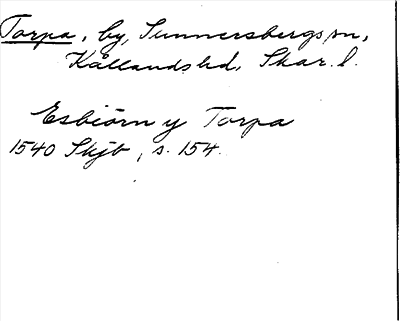 Torpa, by, Sunnersbergs sn,
Kållands hd, Skar. l.
Esbiörn y Torpa
1540 Skjb, s. 154.